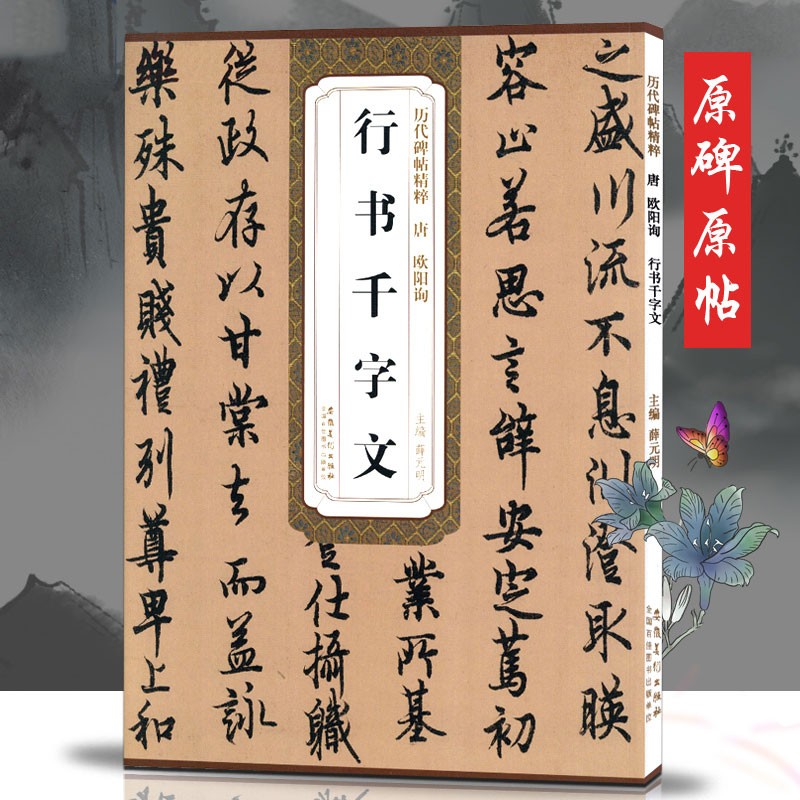 原碑原帖
历代碑帖精粹 唐 欧阳询 行书千字文 主编 薛元明
安徽美术出版社
全国百佳图书出版单位
之盛川流不息渊澄取暎
容止若思言辭安定篤初
業所基
历代碑帖精粹 唐 欧阳询
行书千字文
主编 薛元明
安徽美术出版社
全国百佳图书出版单位
登仕攝職
從政存以甘棠去而益詠
樂殊貴賤禮別尊卑上和